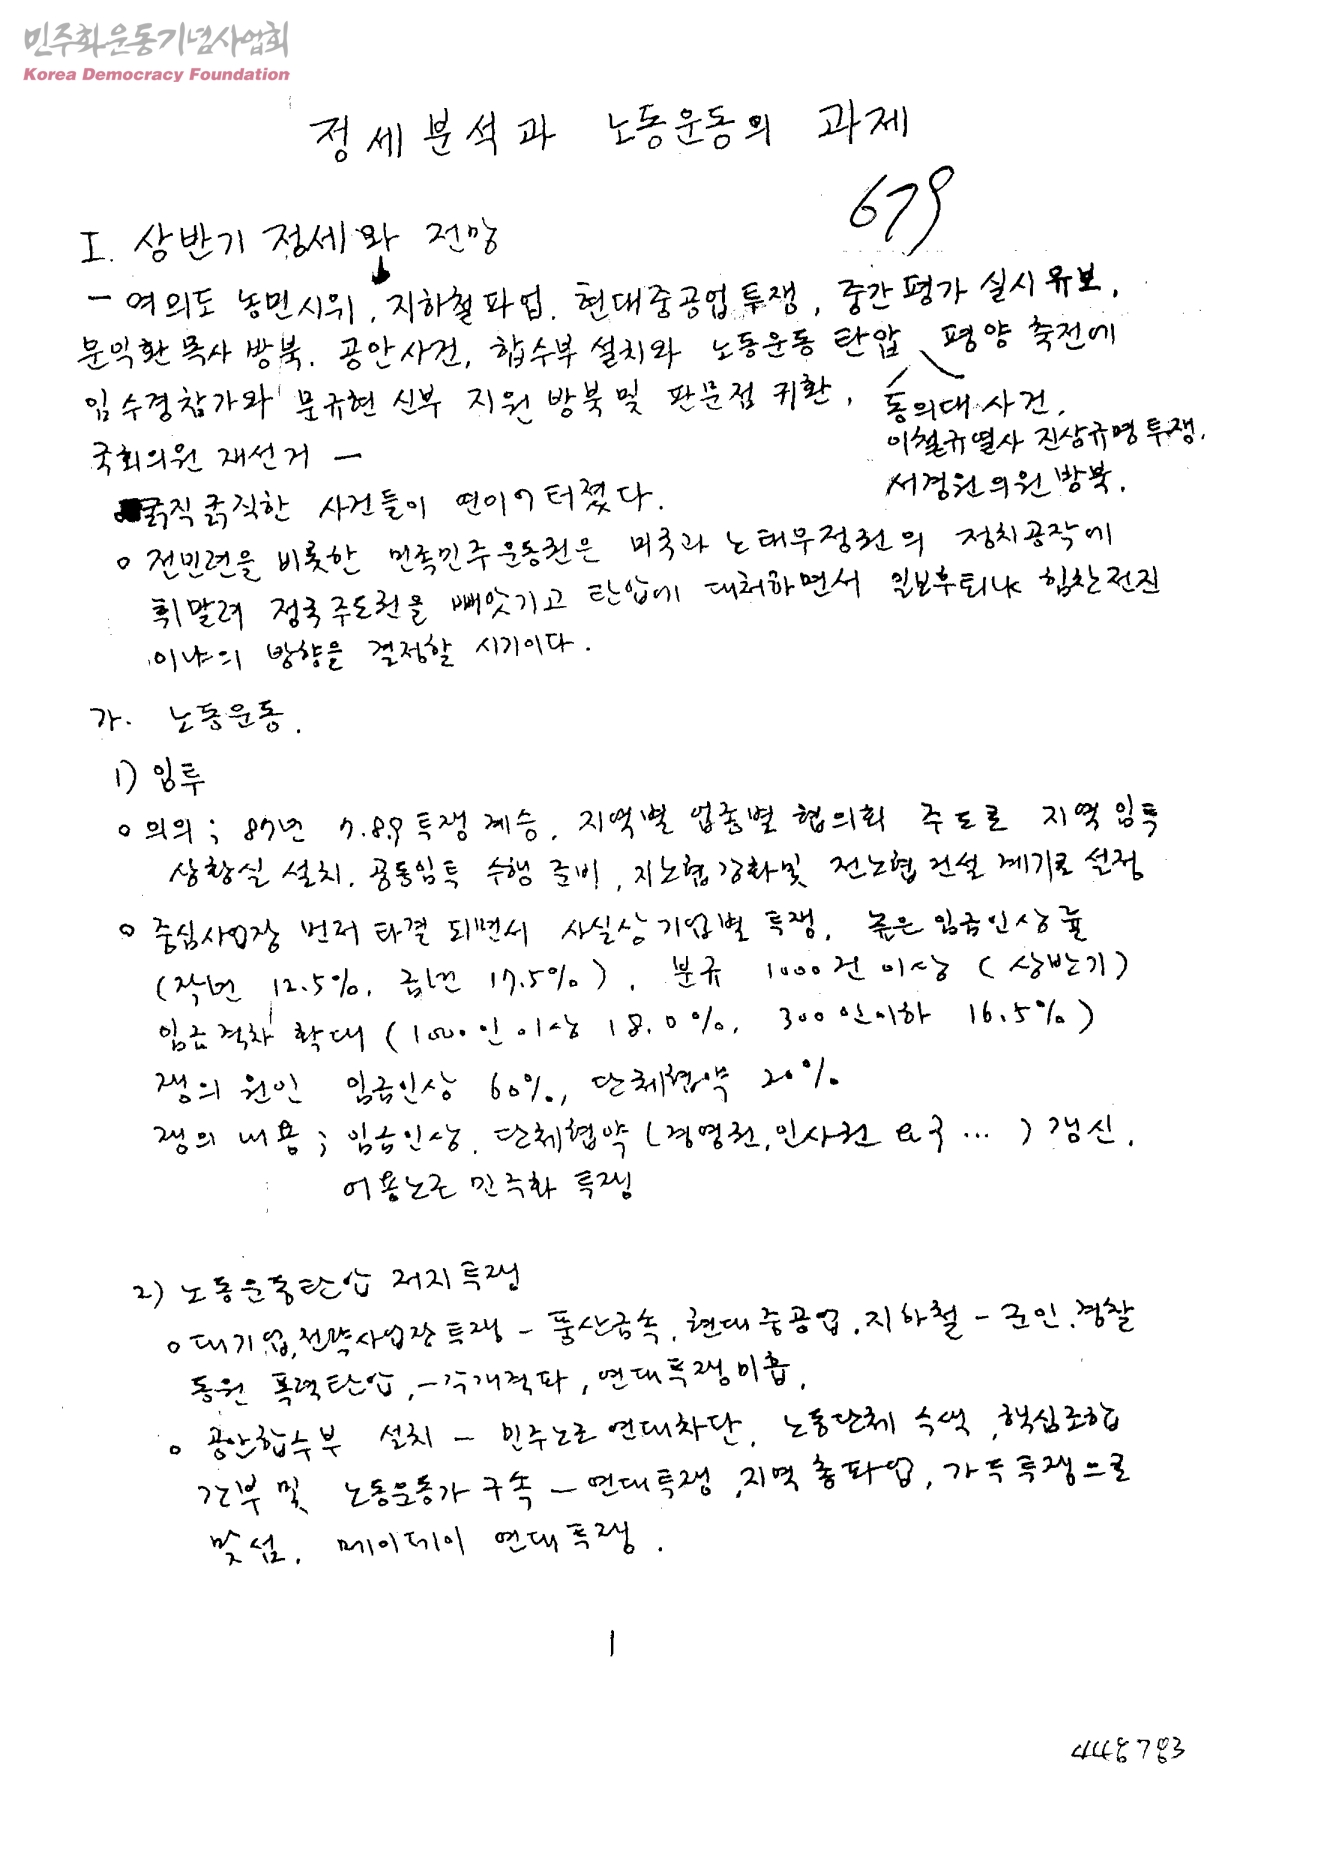 민주화운동기념사업회
Korea Democracy Foundation
정세분석과 노동운동의 과제
679
I. 상반기 정세와 전망
- 여의도 농민시위, 지하철파업. 현대중공업투쟁, 중간평가 실시유보,
문익환목사 방북. 공안사건, 합수부 설치와 노동운동 탄압 평양 축전에
임수경참가와 문규현 신부 지원 방북및 판문점 귀환,
동의대 사건.
이철규열사 진상규명투쟁.
서경원의원방북.
국회의원 재선거 -
굵직굵직한 사건들이 연이어 터졌다.
o 전민련을 비롯한 민족민주운동권은 미국과 노태우정권의 정치공작에
휘말려 정국주도권을 빼앗기고 탄압에 대처하면서 일보후퇴냐 힘찬전진
이냐의 방향을 결정할 시기이다.
가. 노동운동.
1) 임투
o 의의; 87년 7.8.9 투쟁 계승. 지역별 업종별 협의회 주도로 지역임투
상황실 설치. 공동임투 수행 준비, 지노협강화및 전노협건설 계기로 설정
o 중심사업장 먼저 타결 되면서 사실상 기업별 투쟁. 높은 임금인상률
(작년 12.5%. 금년 17.5%). 분규 1000건 이상 (상반기)
임금격차 확대 (1000인이상 18.0%. 300인이하 16.5%)
쟁의 원인 임금인상 60%, 단체협약 20%
쟁의 내용; 임금인상. 단체협약 (경영권,인사권 요구 ...) 갱신.
어용노조 민주화 투쟁
2) 노동운동탄압 저지투쟁
o 대기업,전략사업장투쟁 - 풍산금속, 현대중공업, 지하철 - 군인.경찰
동원 폭력탄압, - 각개격파, 연대투쟁미흡.
o 공안합수부 설치 - 민주노조 연대차단. 노동단체 수색, 핵심조합
간부 및 노동운동가 구속 - 연대투쟁, 지역총파업, 가두투쟁으로
맞섬. 메이데이 연대투쟁.
1
448783